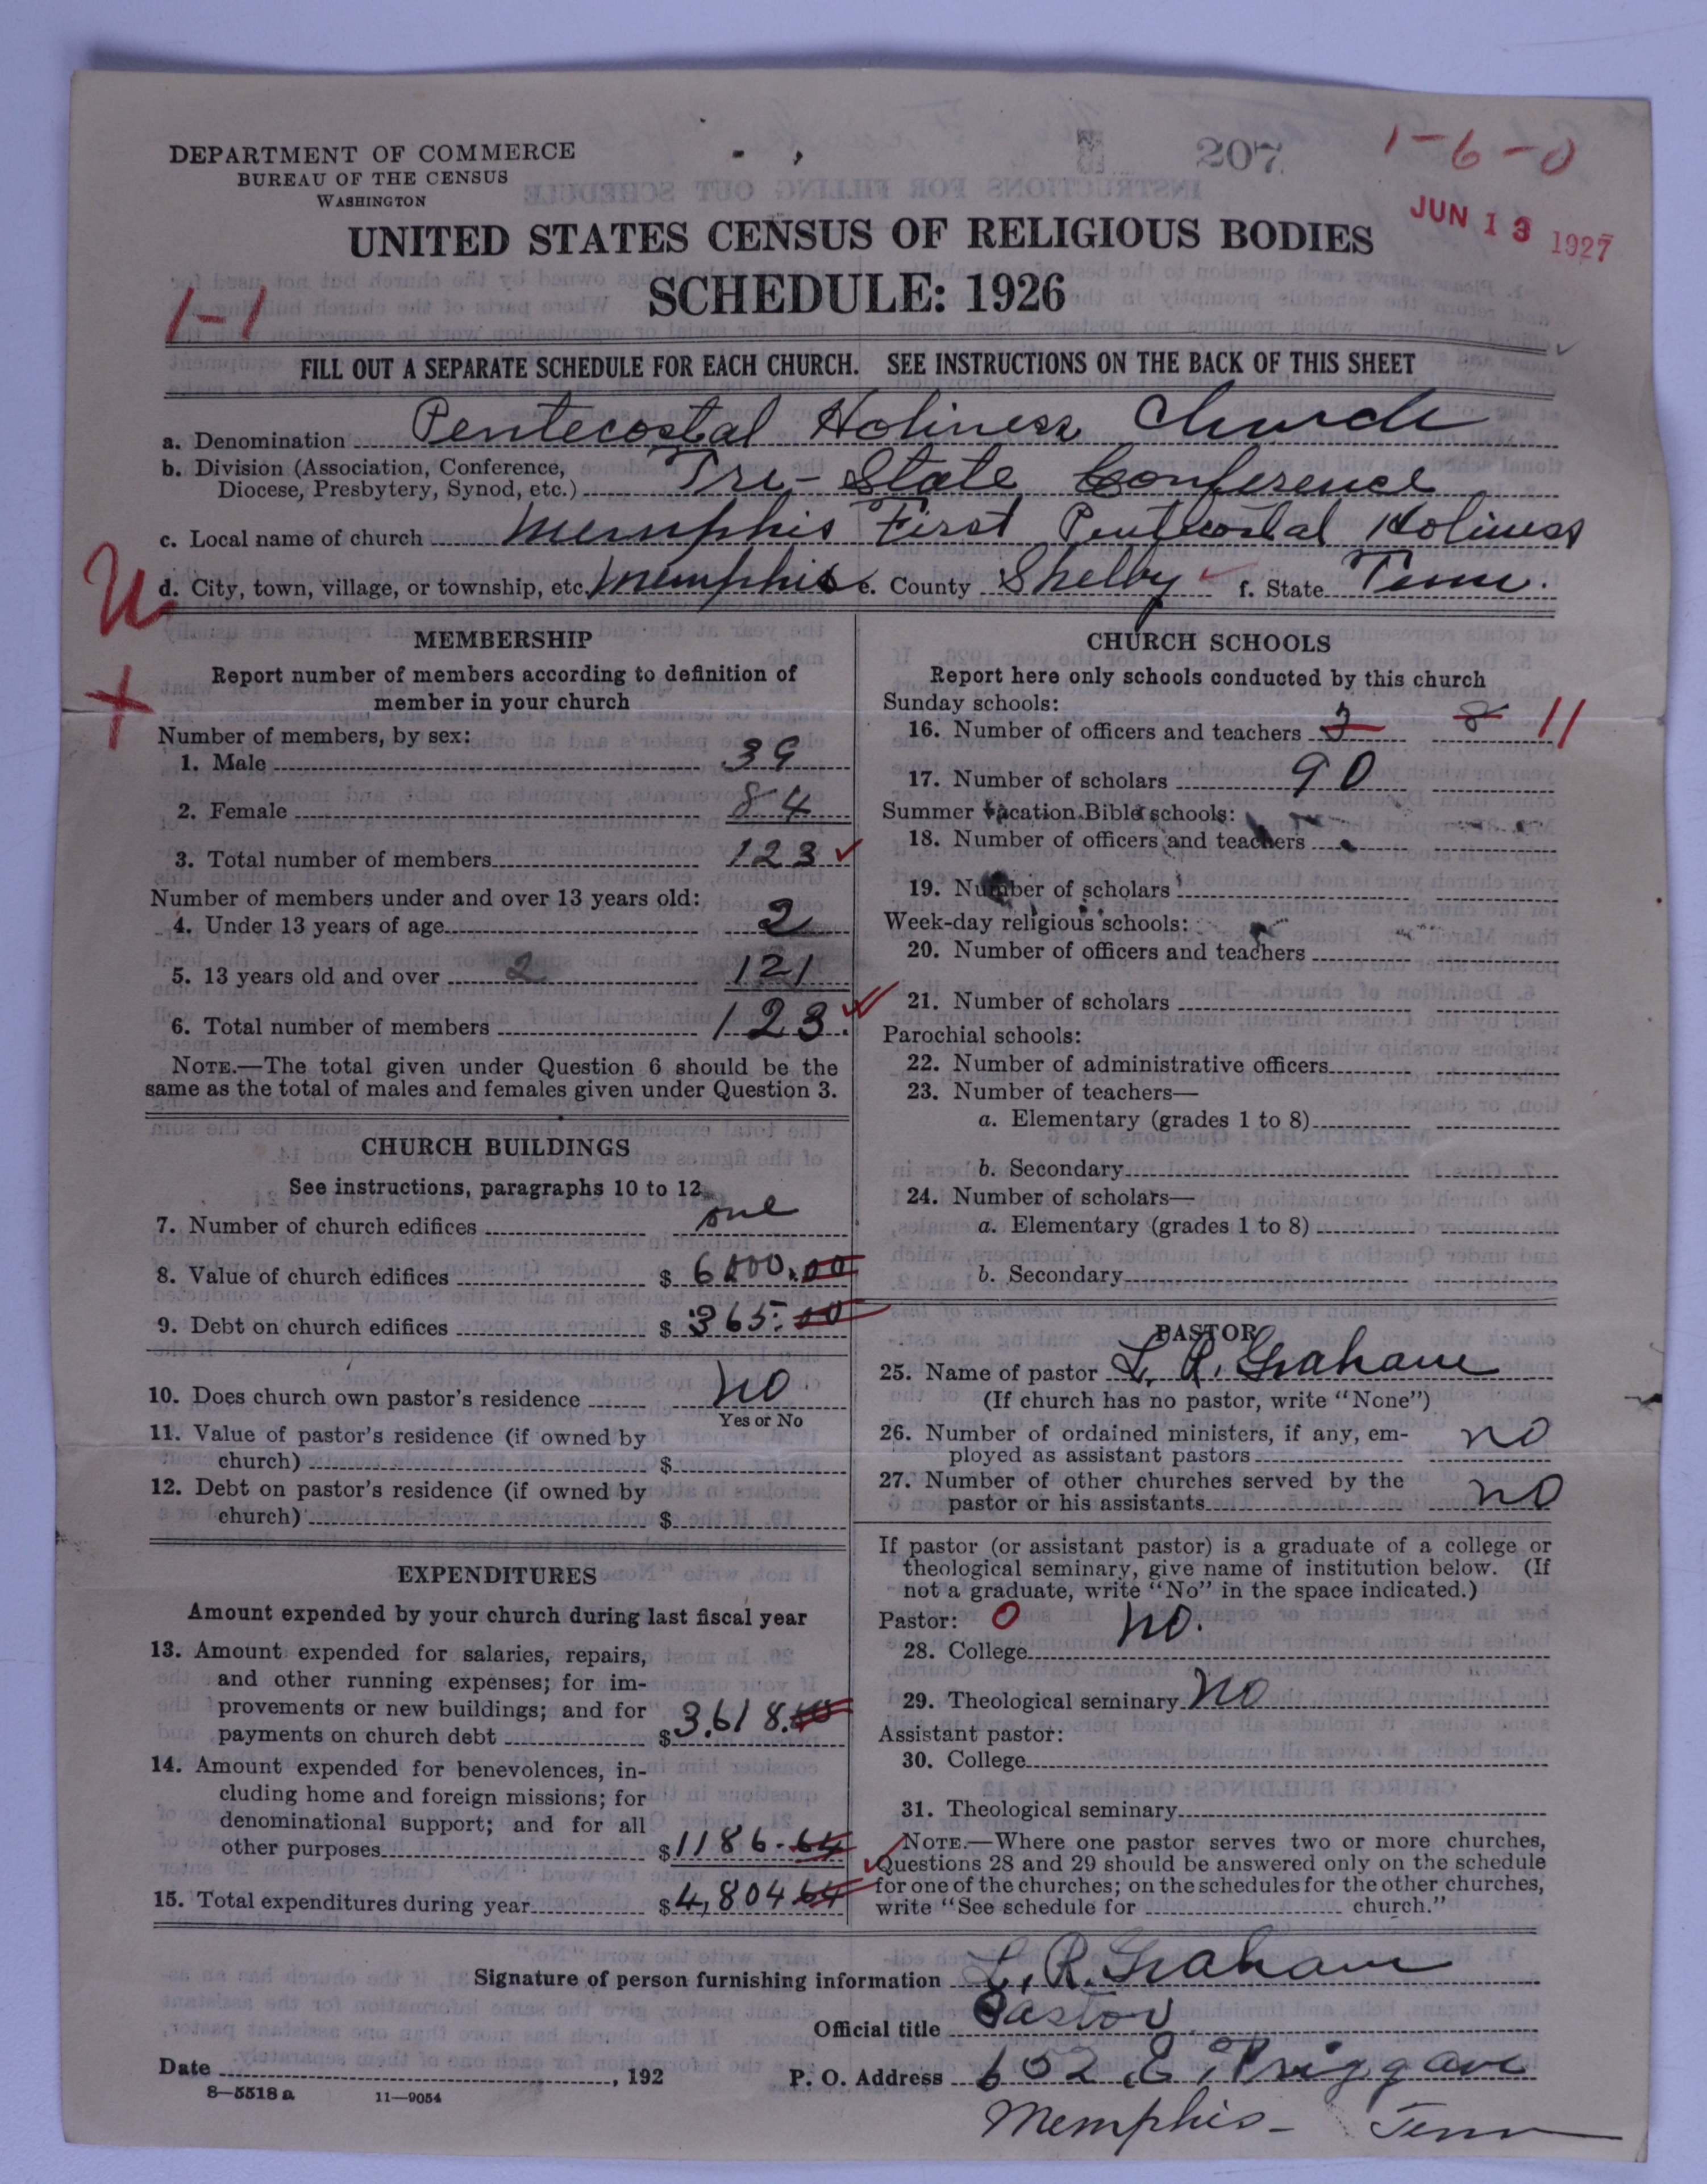 DEPARTMENT OF COMMERCE
BUREAU OF THE CENSUS
WASHINGTON
207
1-6-0
JUN 13 1927
UNITED STATES CENSUS OF RELIGIOUS BODIES
SCHEDULE: 1926
1-1
FILL OUT A SEPARATE SCHEDULE FOR EACH CHURCH. SEE INSTRUCTIONS ON THE BACK OF THIS SHEET
a. Denomination Pentecostal Holiness Church
b. Division (Association, Conference,
Diocese, Presbytery, Synod, etc.) Tri-State Conference
c. Local name of church Memphis First Pentecostal Holiness
d. City, town, village, or township, etc. Memphis e. County Shelby f. State Tenn.
MEMBERSHIP
Report number of members according to definition of
member in your church
Number of members, by sex:
1. Male 39
2. Female 84
3. Total number of members 123
Number of members under and over 13 years old:
4. Under 13 years of age 2
5. 13 years old and over 2 121
6. Total number of members 123.
NOTE.—The total given under Question 6 should be the
same as the total of males and females given under Question 3.
CHURCH BUILDINGS
See instructions, paragraphs 10 to 12
7. Number of church edifices one
8. Value of church edifices $ 6000.00
9. Debt on church edifices $ 365.00
10. Does church own pastor's residence No.
Yes or No
11. Value of pastor's residence (if owned by
church) $
12. Debt on pastor's residence (if owned by
church) $
EXPENDITURES
Amount expended by your church during last fiscal year
13. Amount expended for salaries, repairs,
and other running expenses; for im-
provements or new buildings; and for
payments on church debt $ 3,618.00
14. Amount expended for benevolences, in-
cluding home and foreign missions; for
denominational support; and for all
other purposes $ 1186-64
15. Total expenditures during year $ 4,804.64
CHURCH SCHOOLS
Report here only schools conducted by this church
Sunday schools:
16. Number of officers and teachers 3 8 11
17. Number of scholars 90
Summer vacation Bible schools:
18. Number of officers and teachers
19. Number of scholars
Week-day religious schools:
20. Number of officers and teachers
21. Number of scholars
Parochial schools:
22. Number of administrative officers
23. Number of teachers—
a. Elementary (grades 1 to 8)
b. Secondary
24. Number of scholars—
a. Elementary (grades 1 to 8)
b. Secondary
PASTOR
25. Name of pastor L. R. Graham
(If church has no pastor, write "None")
26. Number of ordained ministers, if any, em-
ployed as assistant pastors no
27. Number of other churches served by the
pastor or his assistants no
If pastor (or assistant pastor) is a graduate of a college or
theological seminary, give name of institution below. (If
not a graduate, write "No" in the space indicated.)
Pastor: 0
28. College No.
29. Theological seminary No
Assistant pastor:
30. College
31. Theological seminary
NOTE.—Where one pastor serves two or more churches,
Questions 28 and 29 should be answered only on the schedule
for one of the churches; on the schedules for the other churches,
write "See schedule for church."
Signature of person furnishing information L. R. Graham
Official title Pastor
Date , 192 P. O. Address 652 E. Trigg ave
8-5518 a 11-9054
Memphis- Tenn